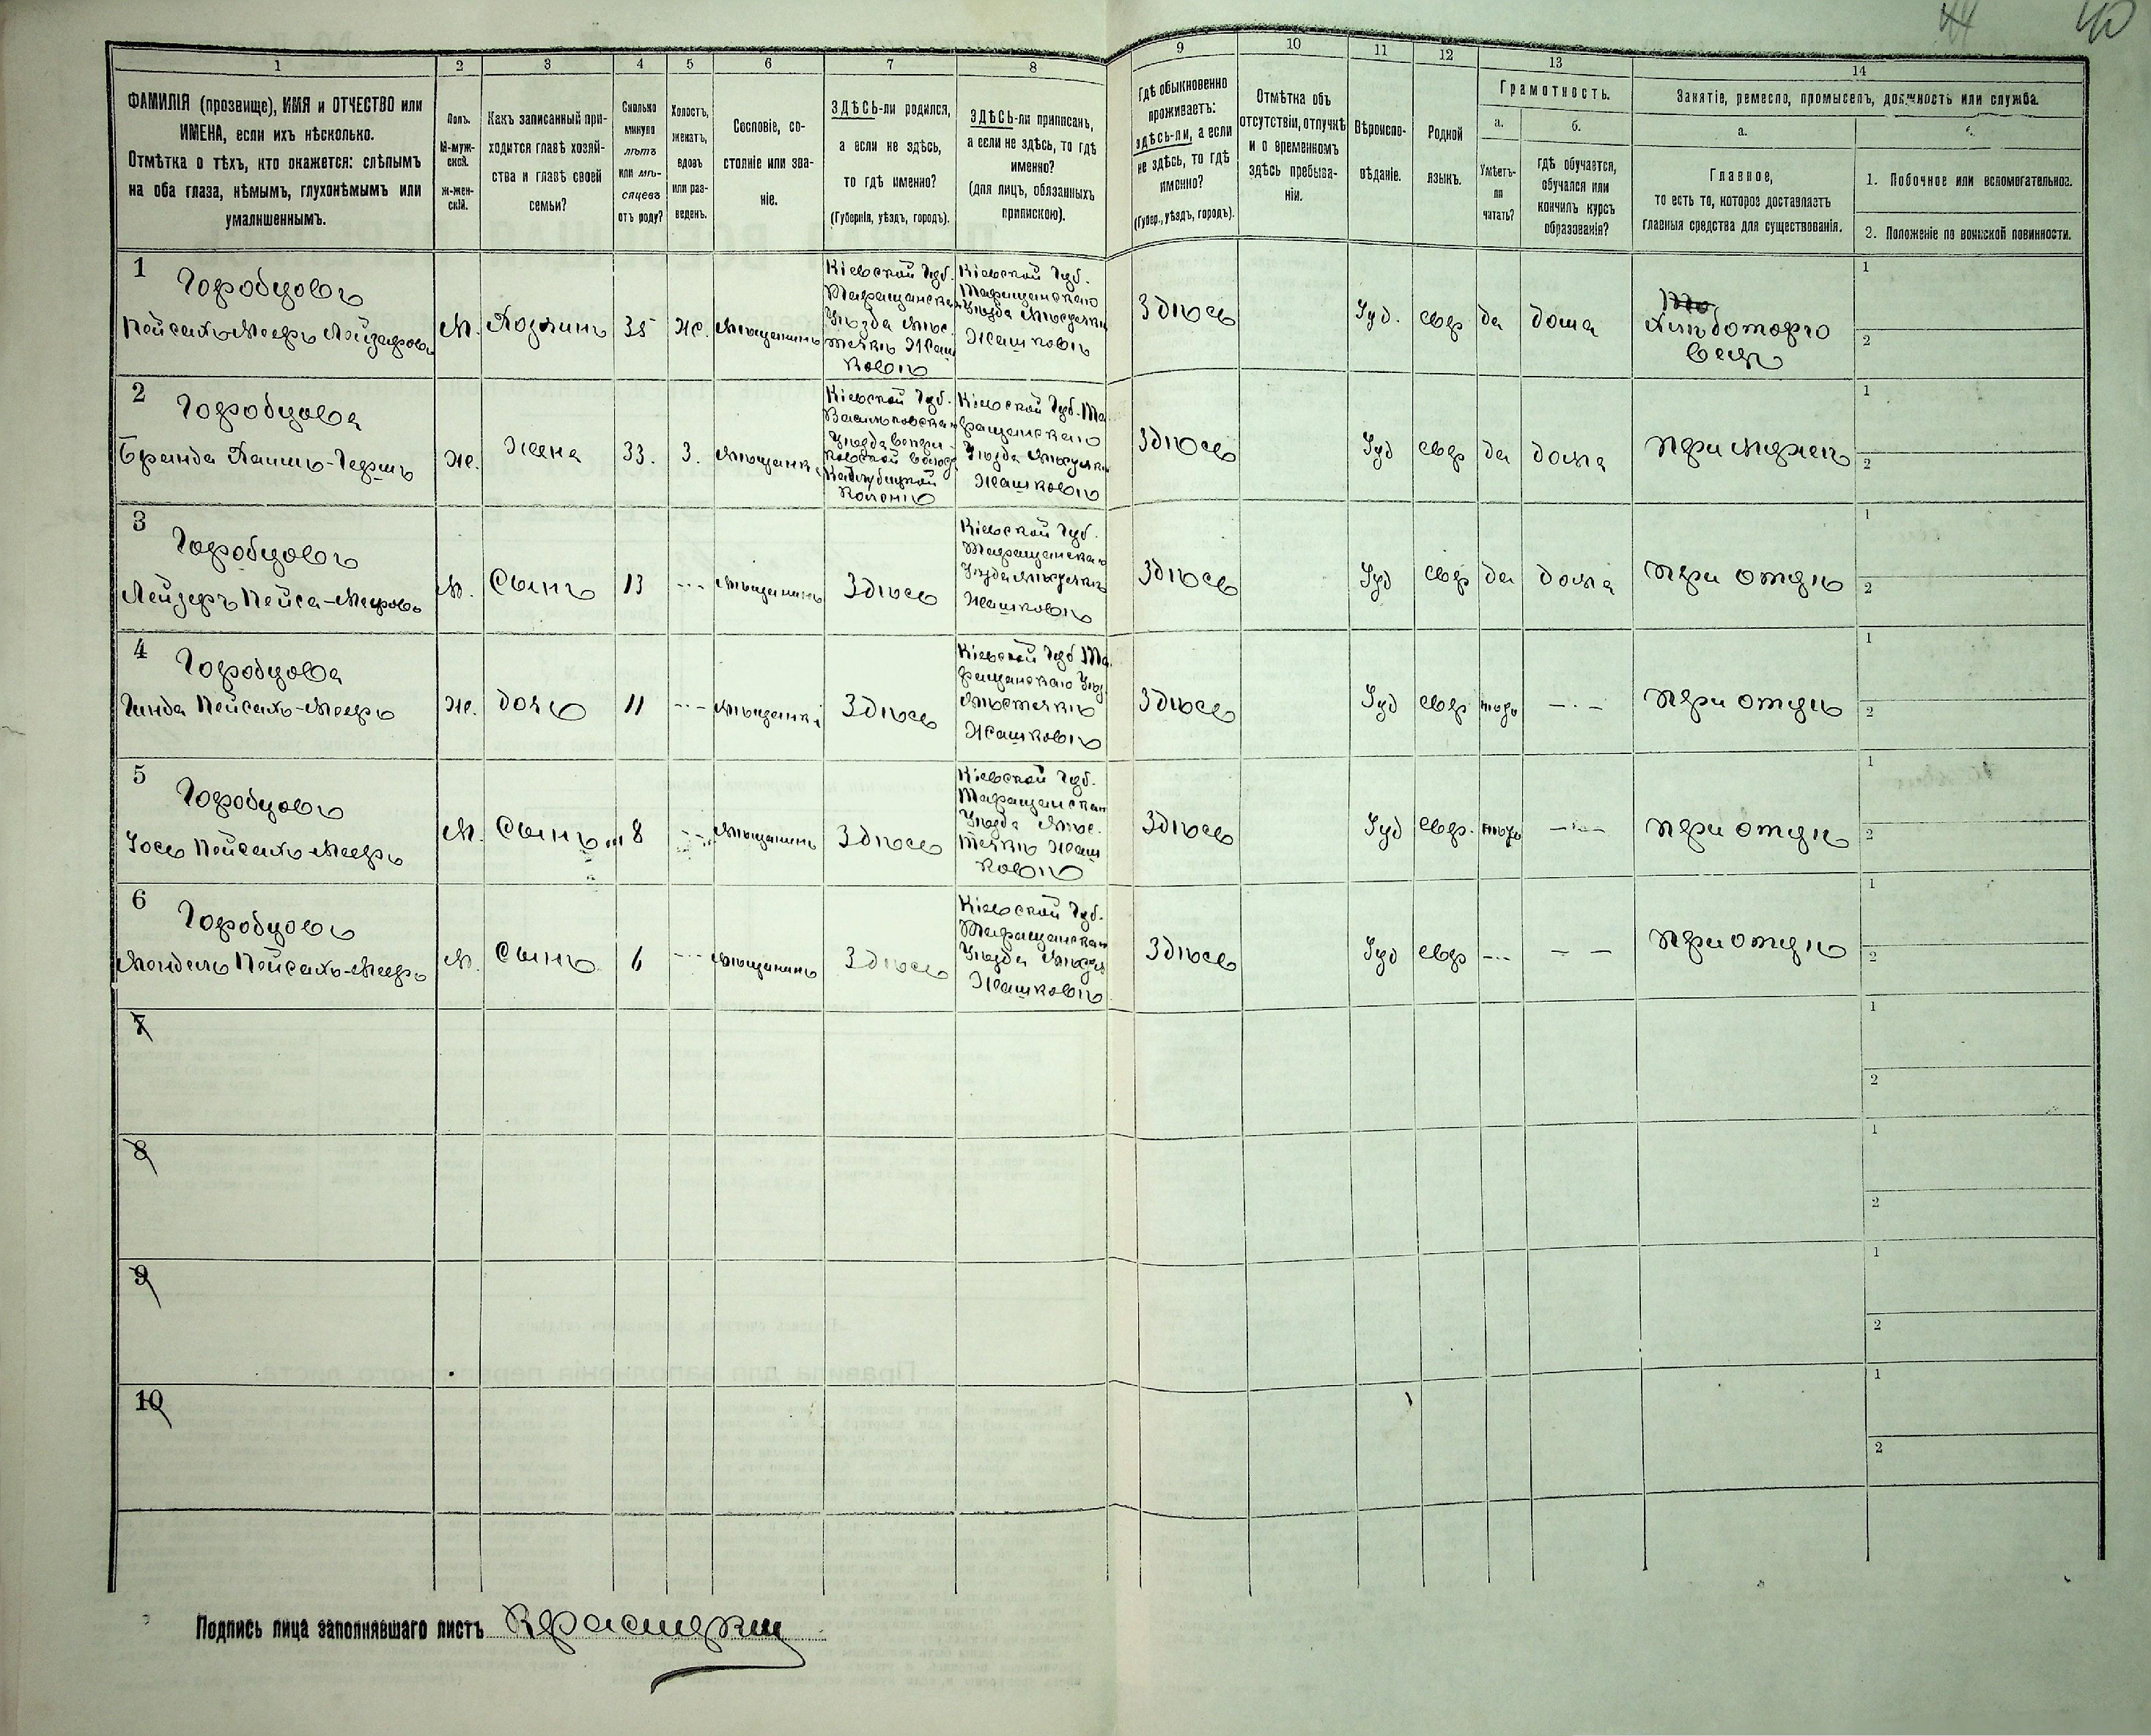 44 40
1 2 3 4 5 6 7 8 9 10 11 12 13 14
ФАМИЛІЯ (прозвище), ИМЯ и ОТЧЕСТВО или
ИМЕНА, если ихъ нѣсколько.
Отмѣтка о тѣхъ, кто окажется: слѣпымъ
на оба глаза, нѣмымъ, глухонѣмымъ или
умалишеннымъ.
Полъ.
М-муж-
ской.
Ж-жен-
скій.
Какъ записанный при-
ходится главѣ хозяй-
ства и главѣ своей
семьи?
Сколько
минуло
лѣтъ
или мѣ-
сяцевъ
отъ роду?
Холостъ,
женатъ,
вдовъ
или раз-
веденъ.
Сословіе, со-
стояніе или зва-
ніе.
ЗДѢСЬ-ли родился,
а если не здѣсь,
то гдѣ именно?
(Губернія, уѣздъ, городъ).
ЗДѢСЬ-ли приписанъ,
а если не здѣсь, то гдѣ
именно?
(для лицъ, обязанныхъ
припискою).
Гдѣ обыкновенно
проживаетъ:
здѣсь-ли, а если
не здѣсь, то гдѣ
именно?
(Губер., уѣздъ, городъ).
Отмѣтка объ
отсутствіи, отлучкѣ
и о временномъ
здѣсь пребыва-
ніи.
Вѣроиспо-
вѣданіе.
Родной
языкъ.
Грамотность.
а.
Умѣетъ-
ли
читать?
б.
гдѣ обучается,
обучался или
кончилъ курсъ
образованія?
Занятіе, ремесло, промыселъ, должность или служба.
а.
Главное,
то есть то, которое доставляетъ
главныя средства для существованія.
1. Побочное или вспомогательное.
2. Положеніе по воинской повинности.
1
Городцовъ
Пейсахъ-Мееръ Лейзеровъ
М.
Хозяинъ
35
Ж.
Мѣщанинъ
Кіевской Губ.
Таращанскаго
Уѣзда Мѣс.
течкѣ Жаш
ковѣ
Кіевской Губ.
Таращанскаго
Уѣзда Мѣстечкѣ
Жашковѣ
Здѣсь
Іуд.
евр
да
дома
Хлѣботорго
вецъ
1
2
2
Городцова
Бранда Хаимъ-Гершъ
Ж.
Жена
33.
З.
Мѣщанка
Кіевской Губ.
Васильковскаго
Уѣзда
Колоніѣ
Кіевской Губ. Та
ращанскаго
Уѣзда Мѣстечкѣ
Жашковѣ
Здѣсь
Іуд
евр
да
дома
при мужѣ
1
2
3
Городцовъ
Лейзеръ Пейса-Мееровъ
М.
Сынъ
13
---
Мѣщанинъ
Здѣсь
Кіевской Губ.
Таращанскаго
Уѣзда Мѣстечкѣ
Жашковѣ
Здѣсь
Іуд
евр
да
дома
при отцѣ
1
2
4
Городцова
Гинда Пейсахъ-Мееръ
Ж.
дочь
11
---
Мѣщанка
Здѣсь
Кіевской Губ Та
ращанскаго Уѣз
Мѣстечкѣ
Жашковѣ
Здѣсь
Іуд
евр
---
при отцѣ
1
2
5
Городцовъ
Іось Пейсахъ-Мееръ
М.
Сынъ
8
---
Мѣщанинъ
Здѣсь
Кіевской Губ.
Таращанскаго
Уѣзда Мѣс.
течкѣ Жаш
ковѣ
Здѣсь
Іуд
евр.
---
при отцѣ
1
2
6
Городцовъ
Мендель Пейсахъ-Мееръ
М.
Сынъ
6
---
Мѣщанинъ
Здѣсь
Кіевской Губ.
Таращанскаго
Уѣзда
Жашковѣ
Здѣсь
Іуд
евр
---
— —
при отцѣ
1
2
7
1
2
8
1
2
9
1
2
10
1
2
Подпись лица заполнявшаго листъ